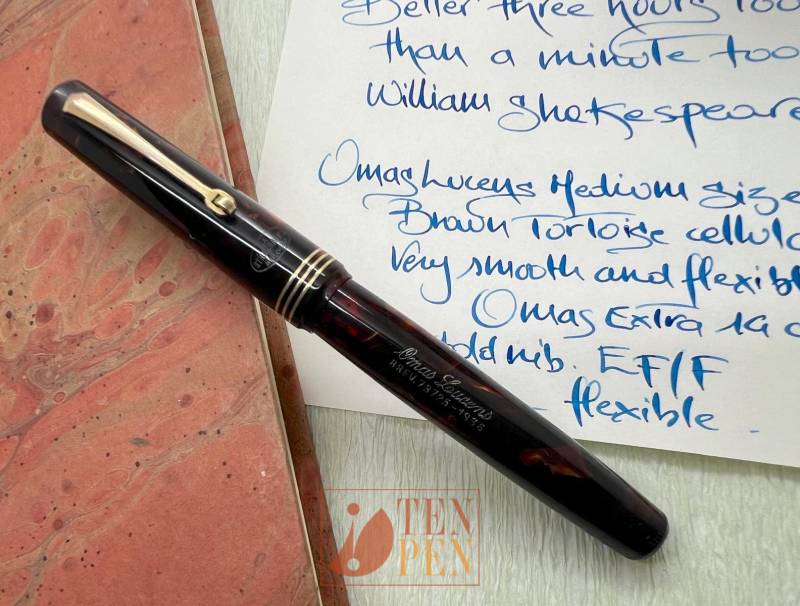 Better three hours too
than a minute too
William Shakespeare
Omas Lucens Medium Size
Brown Tortoise cellulo
Very smooth and flexibl
Omas Extra 14 c
gold nib. EF/F
- flexible.
Omas Lucens
BREV.
TEN
PEN